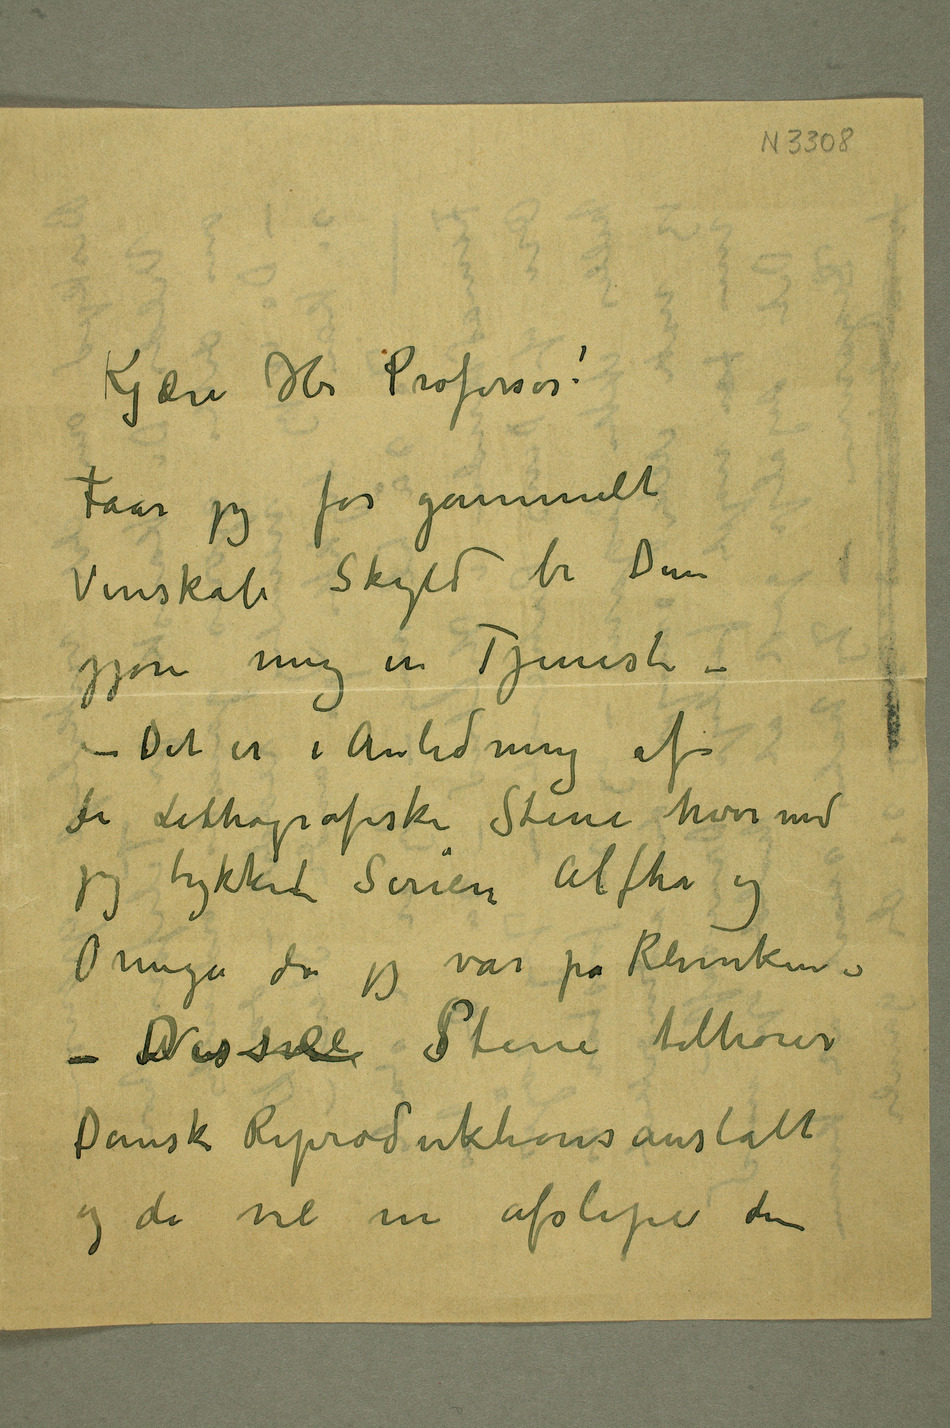 N 3308
Kjære Hr Professor!
Faar jeg for gammelt
Venskabs Skyld be Dem
gjøre mig en Tjeneste –
– Det er i Anledning af
de Lithografiske Stene hvormed
jeg trykked Serien Alfha og
Omega da jeg var på Kliniken –
– Stene tilhører
Dansk Reproduktionsanstalt
og de vil nu afslipes dem